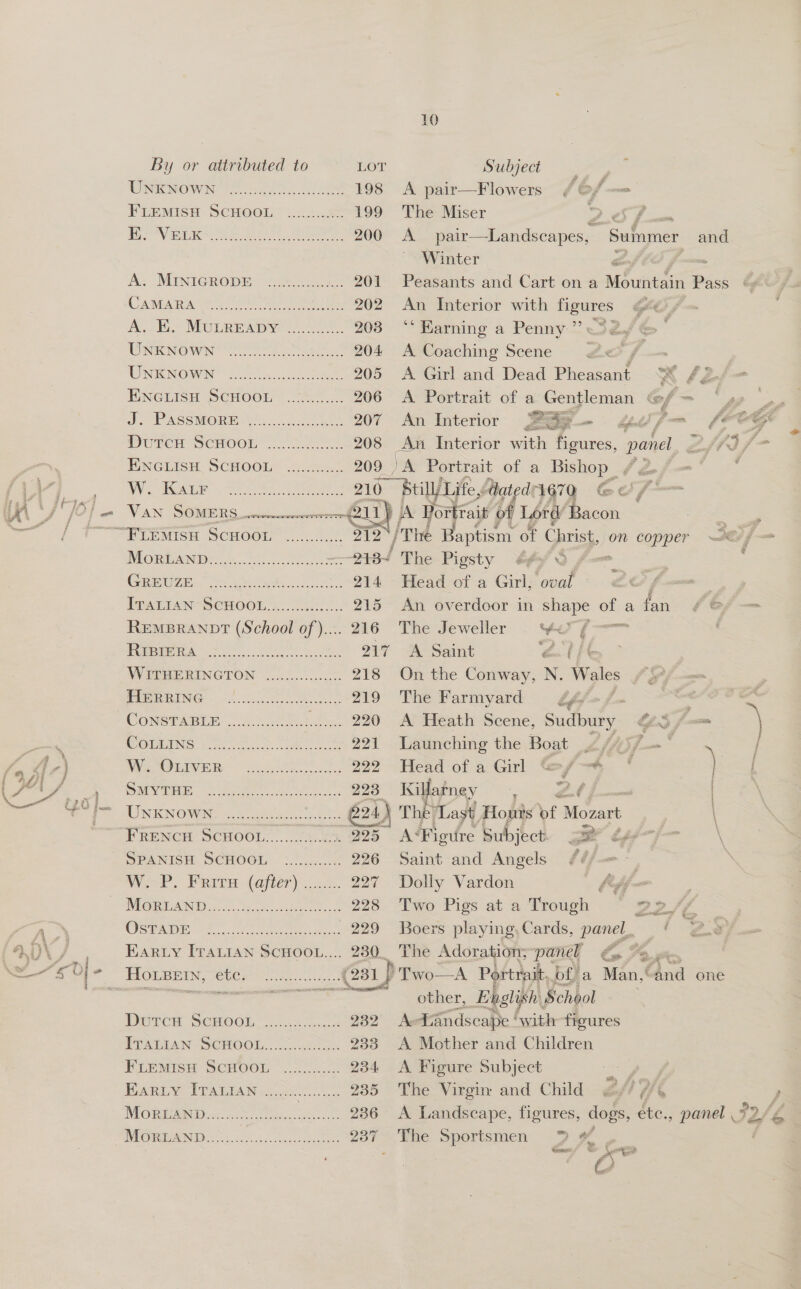 10
By or attributed to LOT Subject
UNKNOWN ............ 198 A pair—Flowers
FLEMISH SCHOOL ............ 199 The Miser
E. VELK ............ 200 A pair—Landscapes, Summer and
Winter
A. MINIGRODE ............ 201 Peasants and Cart on a Mountain Pass
CAMARA ............ 202 An Interior with figures
A. E. MULREADY ............ 203 “Earning a Penny”
UNKNOWN ............ 204 A Coaching Scene
UNKNOWN ............ 205 A Girl and Dead Pheasant
ENGLISH SCHOOL ............ 206 A Portrait of a Gentleman
J. PASSMORE ............ 207 An Interior
DUTCH SCHOOL ............ 208 An Interior with figures, panel
ENGLISH SCHOOL ............ 209 A Portrait of a Bishop
W. KALF ............ 210 Still Life, dated 1679
VAN SOMERS ............ 211 A Portrait of Lord Bacon
FLEMISH SCHOOL ............ 212 The Baptism of Christ, on copper
MORLAND ............ 213 The Pigsty
GREUZE ............ 214 Head of a Girl, oval
ITALIAN SCHOOL ............ 215 An overdoor in shape of a fan
REMBRANDT (School of).... 216 The Jeweller
RIBIERA ............ 217 A Saint
WITHERINGTON ............ 218 On the Conway, N. Wales
HERRING ............ 219 The Farmyard
CONSTABLE ............ 220 A Heath Scene, Sudbury
COLLINS ............ 221 Launching the Boat
W. OLIVER ............ 222 Head of a Girl
SMYTHE ............ 223 Killarney
UNKNOWN ............ 224 The Last Hours of Mozart
FRENCH SCHOOL ............ 225 A Figure Subject
SPANISH SCHOOL ............ 226 Saint and Angels
W. P. FRITH (after) ........ 227 Dolly Vardon
MORLAND ............ 228 Two Pigs at a Trough
OSTADE ............ 229 Boers playing Cards, panel
EARLY ITALIAN SCHOOL.... 230 The Adoration, panel
HOLBEIN, etc. ............ 231 Two—A Portrait of a Man, and one
other, English School
DUTCH SCHOOL ............ 232 A Landscape with figures
ITALIAN SCHOOL ............ 233 A Mother and Children
FLEMISH SCHOOL ............ 234 A Figure Subject
EARLY ITALIAN ............ 235 The Virgin and Child
MORLAND ............ 236 A Landscape, figures, dogs, etc., panel
MORLAND ............ 237 The Sportsmen